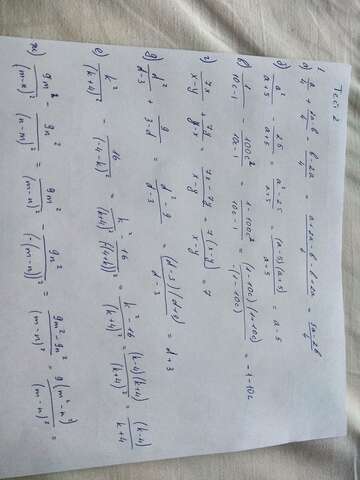 Тест 2
1
а) a/4 + (2a-b)/4 - (b-2a)/4 = (a+2a-b-b+2a)/4 = (5a-2b)/4
б) a²/(a+5) - 25/(a+5) = (a²-25)/(a+5) = (a-5)(a+5)/(a+5) = a-5
в) 1/(10c-1) - 100c²/(10c-1) = (1-100c²)/(10c-1) = (1-10c)(1+10c)/-(1-10c) = -1-10c
г) 7x/(x-y) + 7y/(y-x) = (7x-7y)/(x-y) = 7(x-y)/(x-y) = 7
д) d²/(d-3) + 9/(3-d) = (d²-9)/(d-3) = (d-3)(d+3)/(d-3) = d+3
е) k²/(k+4)² - 16/(-4-k)² = (k²-16)/(k+4)² = (k-4)(k+4)/(k+4)² = (k-4)/(k+4)
ж) 9m²/(m-n)² - 9n²/(n-m)² = 9m²/(m-n)² - 9n²/(-(m-n))² = (9m²-9n²)/(m-n)² = 9(m²-n²)/(m-n)² =